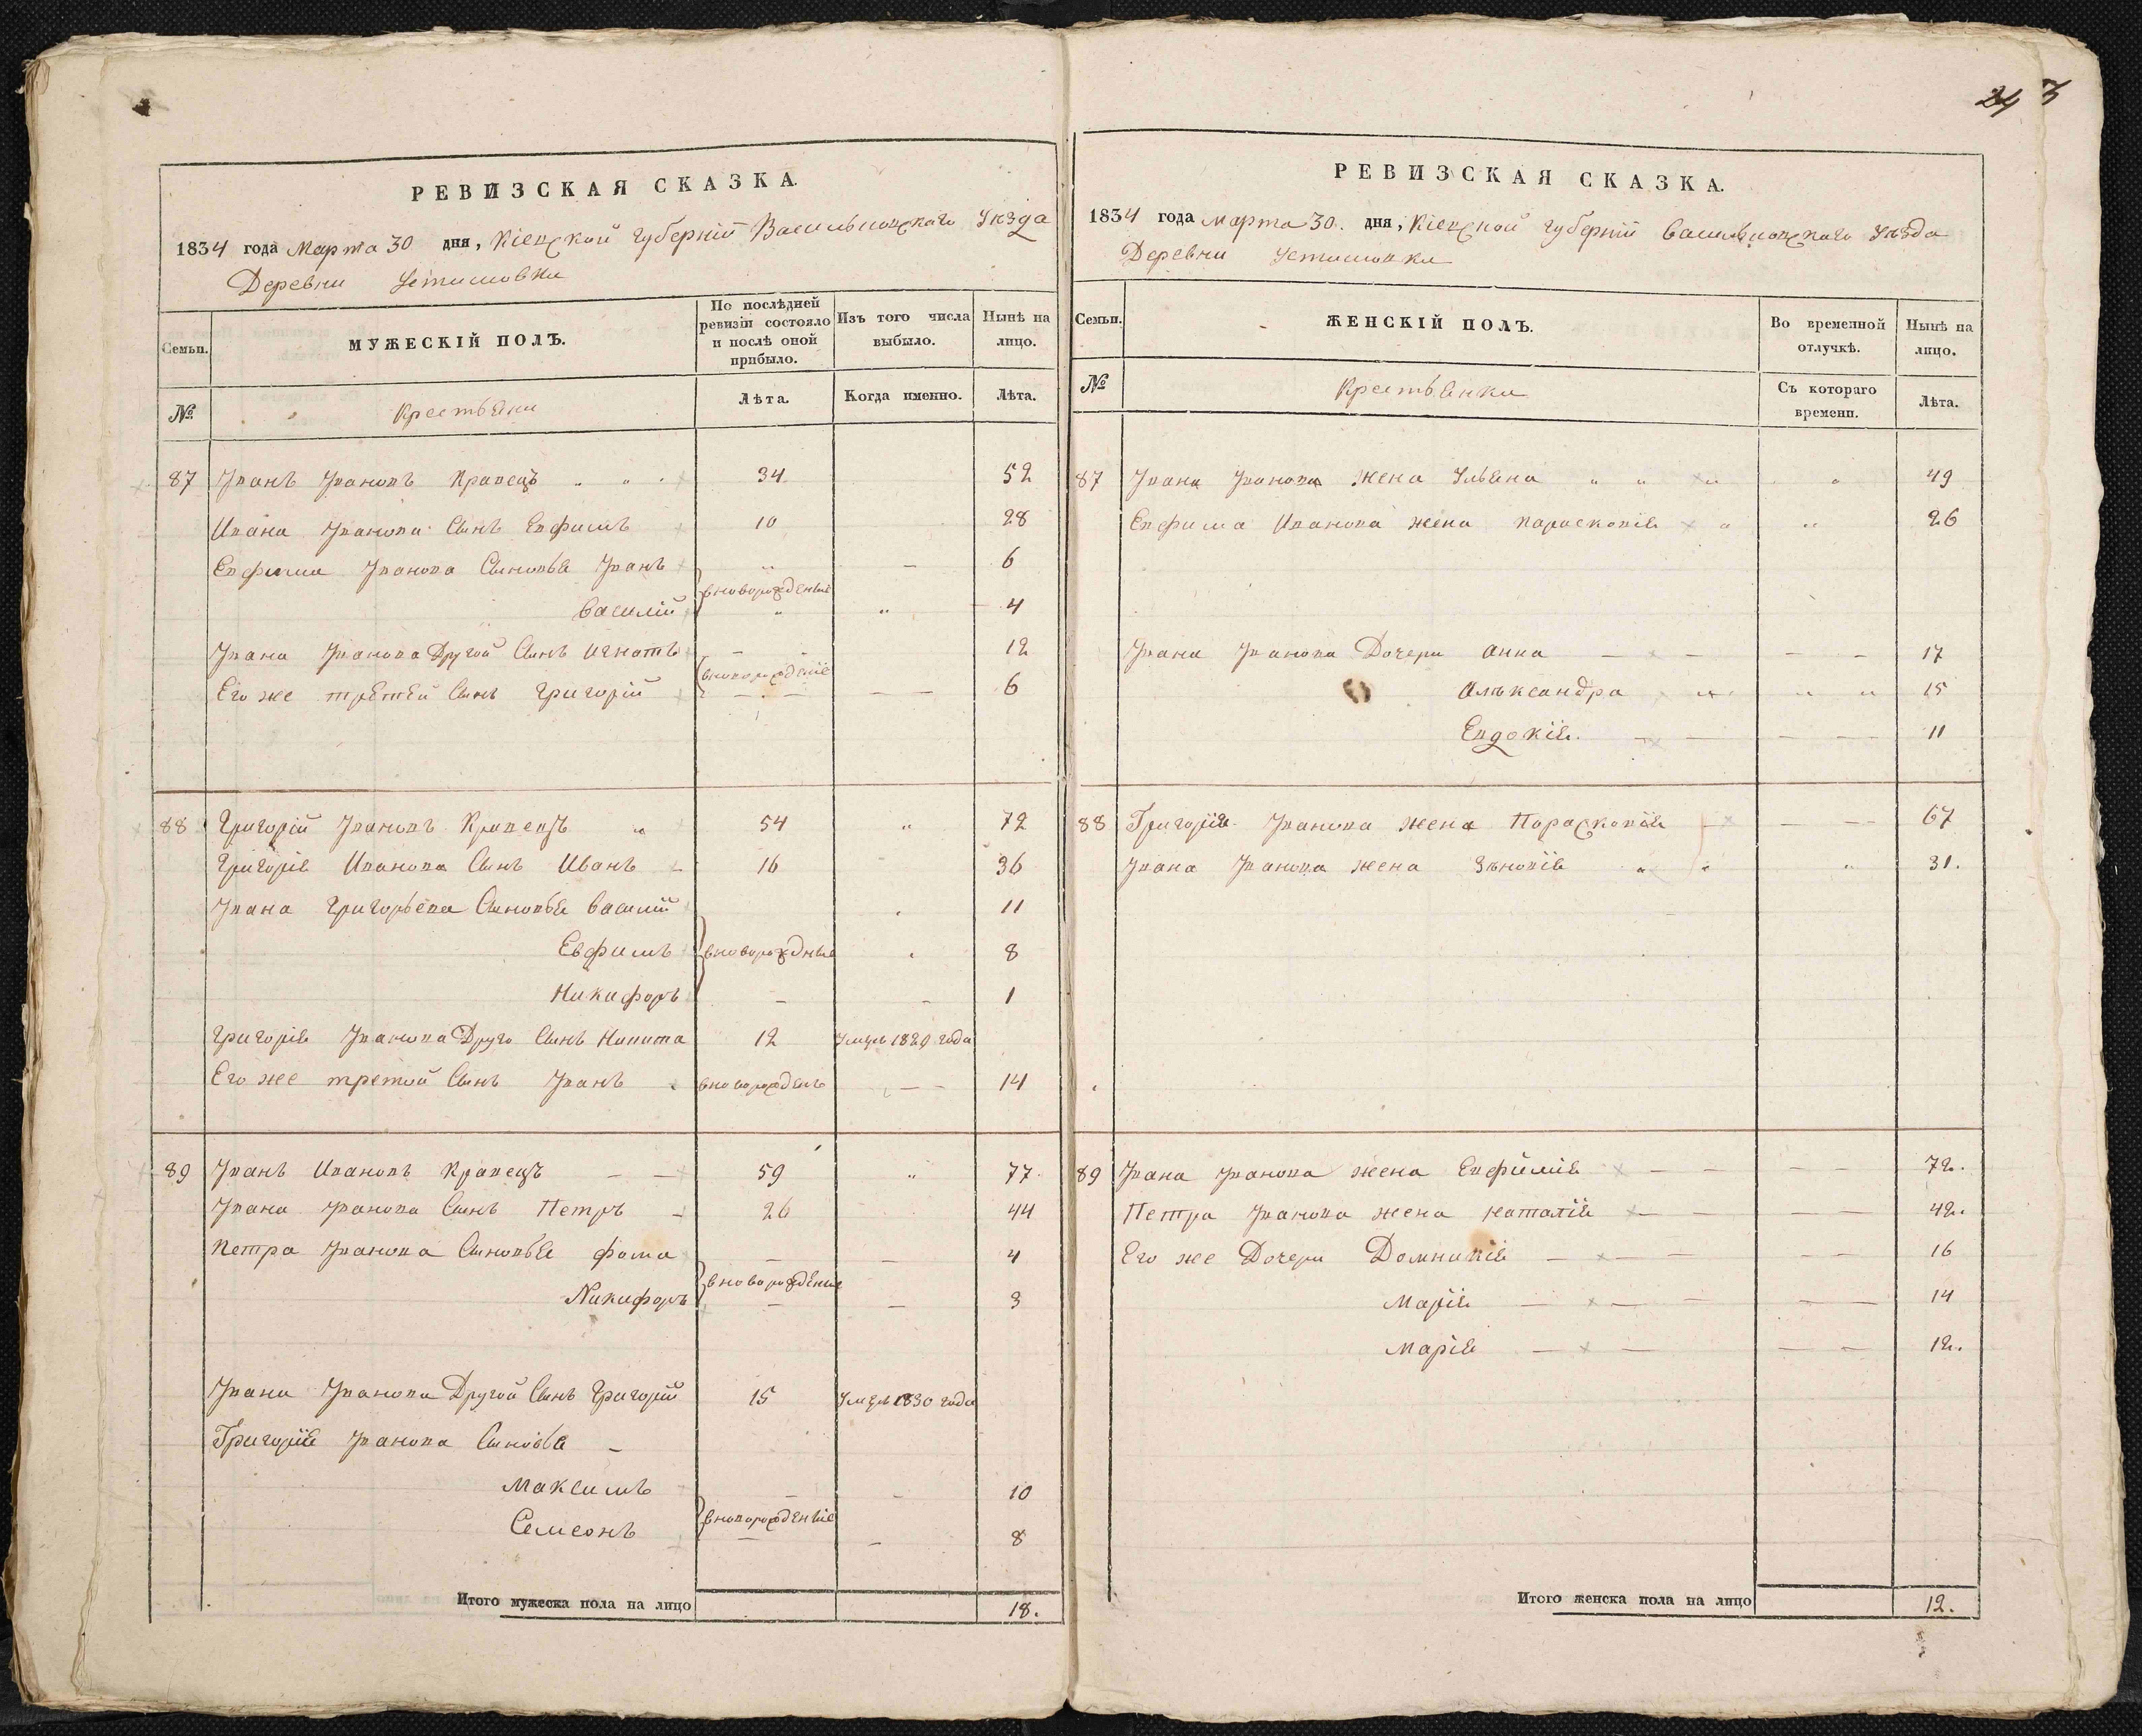 РЕВИЗСКАЯ СКАЗКА.
1834 года Марта 30 дня, Кіевской губерніи Васильковскаго Уѣзда
Деревни Устимовки
Семьи. МУЖЕСКІЙ ПОЛЪ. По послѣдней ревизіи состояло и послѣ оной прибыло. Изъ того числа выбыло. Нынѣ на лицо.
№ Крестьяни Лѣта. Когда именно. Лѣта.
87 Иванъ Ивановъ Кравецъ 34 52
Ивана Иванова Сынъ Евфимъ 10 28
Евфима Иванова Сыновья Иванъ 6
Василій вноворожденые 4
Ивана Иванова Другой Сынъ Игнатъ 12
Его же третей Сынъ Григорій 6
88 Григорій Ивановъ Кравецъ 54 72
Григорія Иванова Сынъ Иванъ 16 36
Ивана Григорьева Сыновья Василій 11
Евфимъ 8
Никифоръ 1
Григорія Иванова Друго Сынъ Никита 12 Умеръ 1829 года
Его же третой Сынъ Иванъ вноворожденъ 14
89 Иванъ Ивановъ Кравецъ 59 77
Ивана Иванова Сынъ Петръ 26 44
Петра Иванова Сыновья Фома 4
Никифоръ вноворожденые 3
Ивана Иванова Другой Сынъ Григорій 15 Умеръ 1830 года
Григорія Иванова Сыновья
Максимъ 10
Семеонъ вноворожденые 8
Итого мужеска пола на лицо 18.
РЕВИЗСКАЯ СКАЗКА.
1834 года Марта 30. дня, Кіевской губерніи Васильковскаго Уѣзда
Деревни Устимовки
Семьи. ЖЕНСКІЙ ПОЛЪ. Во временной отлучкѣ. Нынѣ на лицо.
№ Крестьянки Съ котораго времени. Лѣта.
87 Ивана Иванова Жена Ульяна 49
Евфима Иванова жена Параскевія 26
Ивана Иванова Дочери Анна 17
Алѣксандра 15
Евдокія. 11
88 Григорія Иванова жена Параскевія 67
Ивана Иванова жена Зѣновія 31.
89 Ивана Иванова жена Евфимія 72.
Петра Иванова жена Наталія 42.
Его же Дочери Домникія 16
Марія 14
Марія 12.
Итого женска пола на лицо 12.